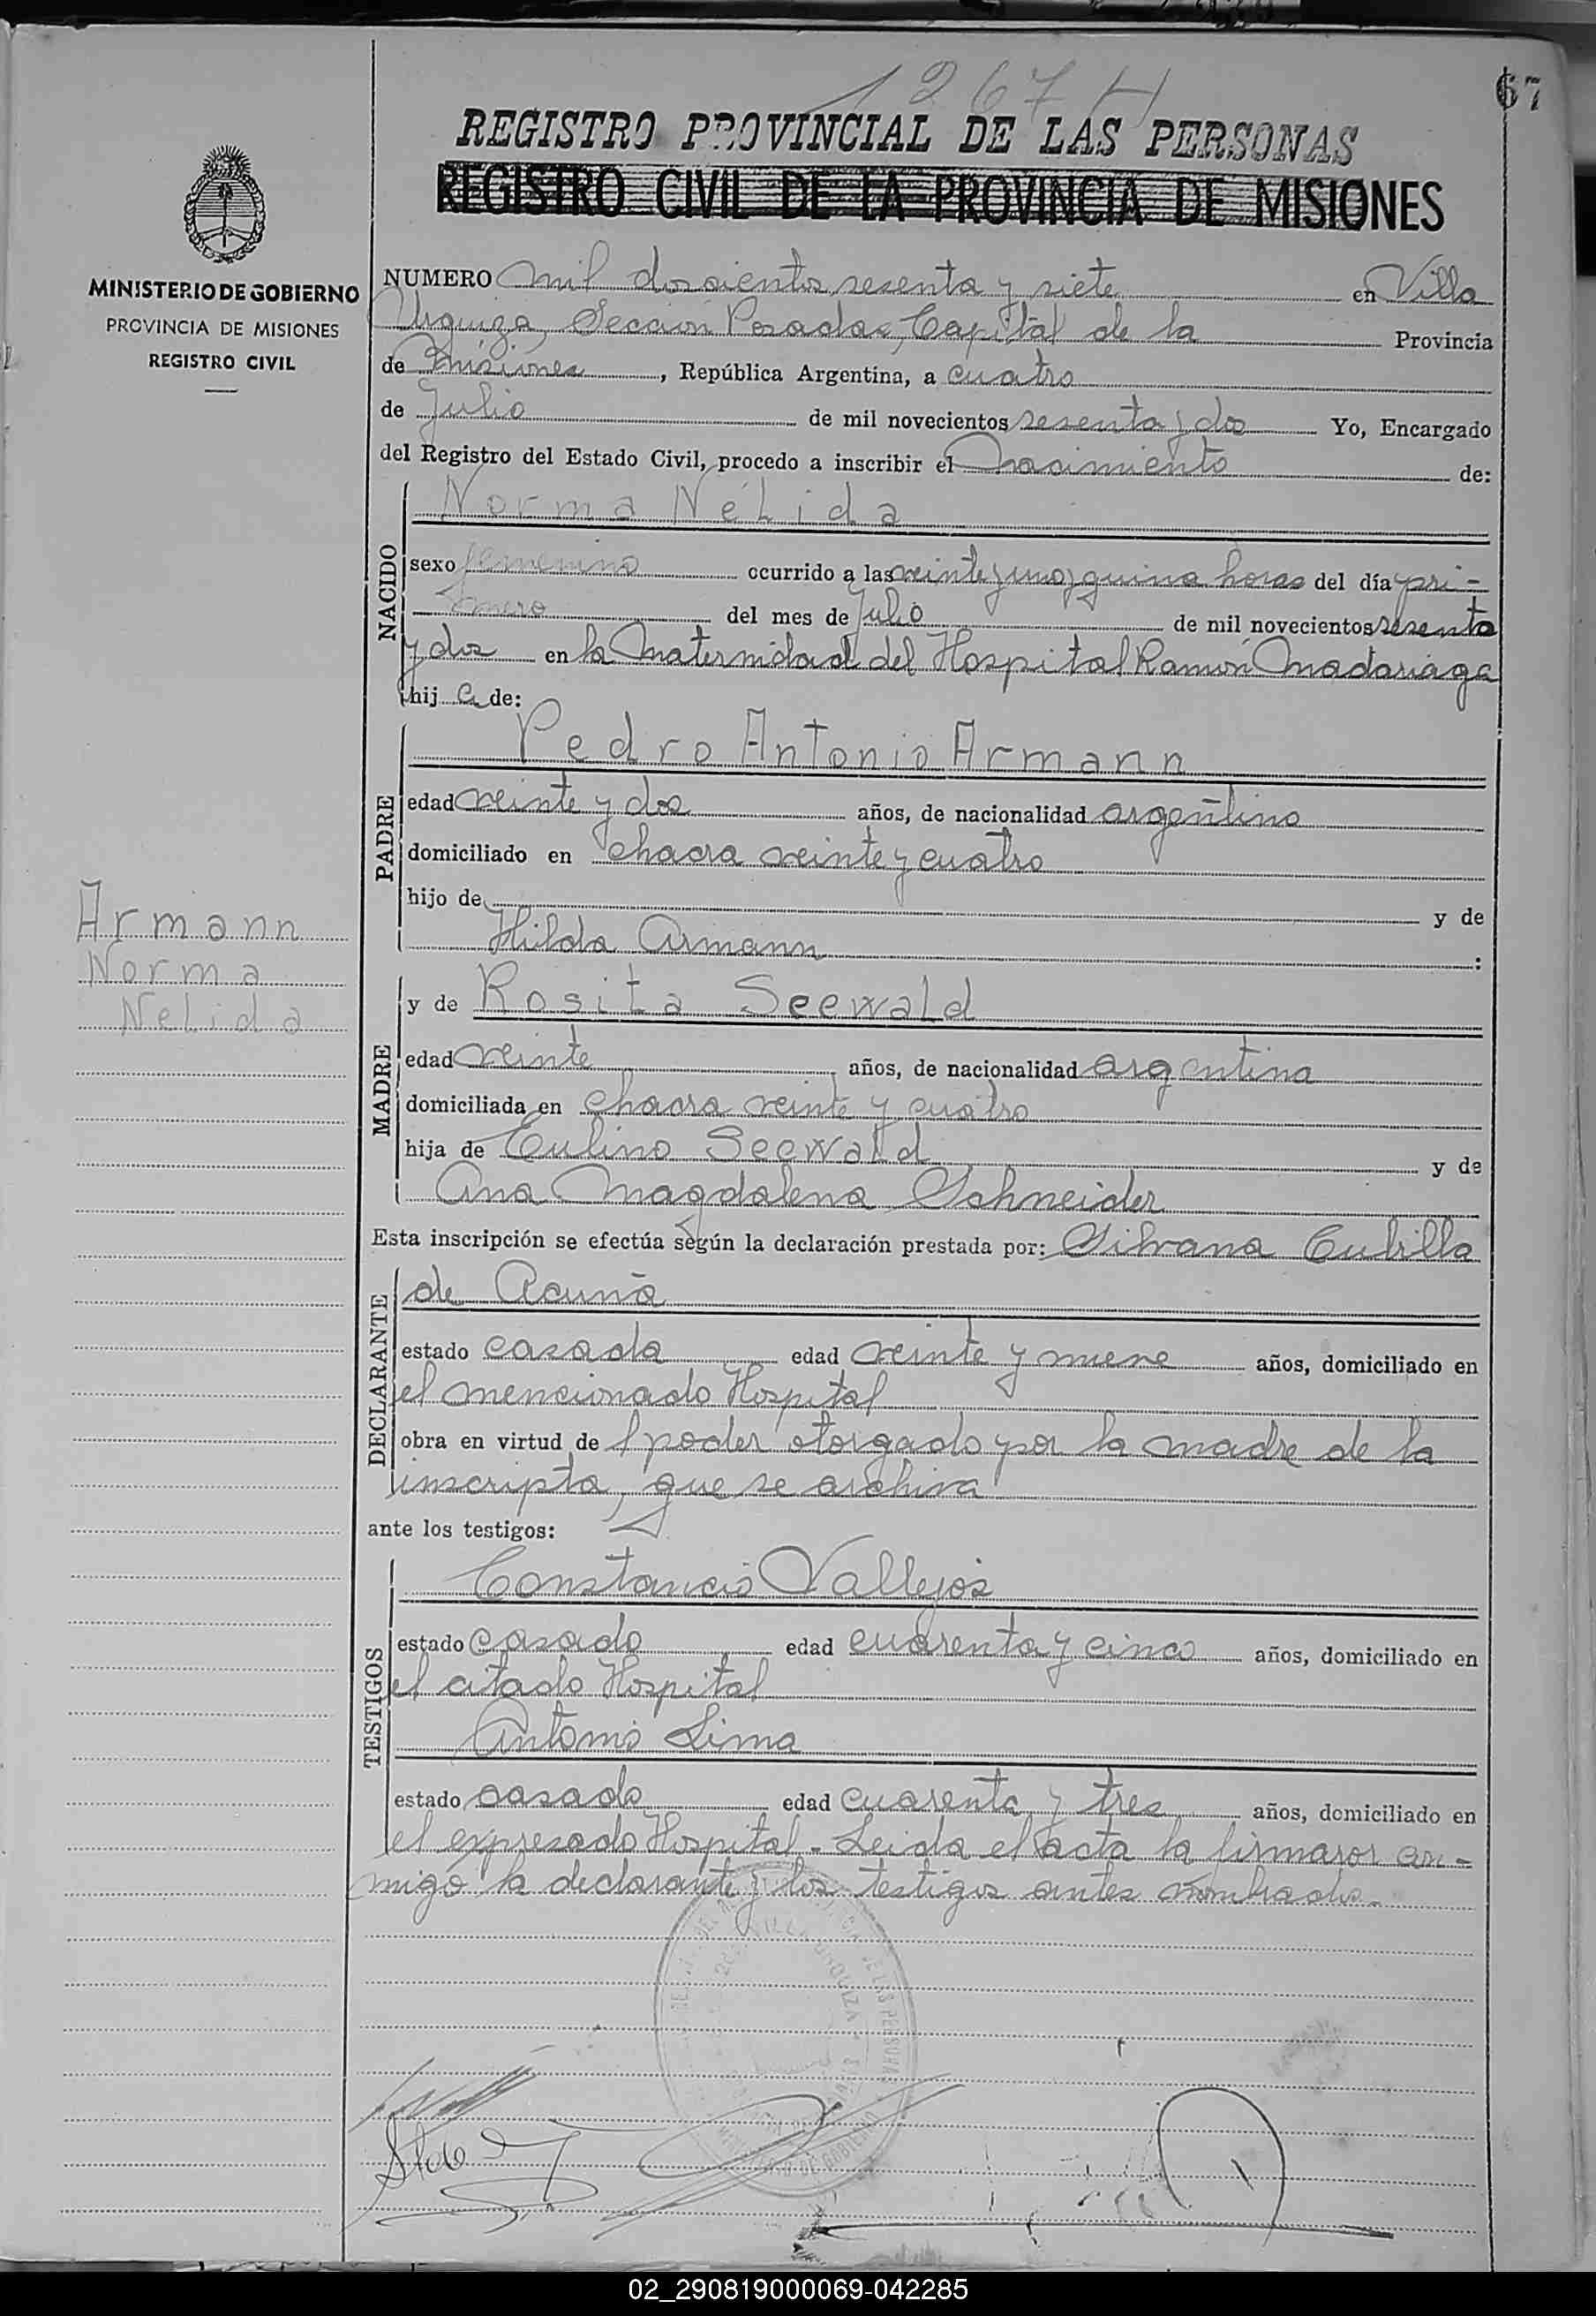 1267 H
67
REGISTRO PROVINCIAL DE LAS PERSONAS
REGISTRO CIVIL DE LA PROVINCIA DE MISIONES
MINISTERIO DE GOBIERNO
PROVINCIA DE MISIONES
REGISTRO CIVIL
NUMERO mil doscientos sesenta y siete en Villa
Urquiza, Sección Posadas, Capital de la Provincia
de Misiones, República Argentina, a cuatro
de Julio de mil novecientos sesenta y dos Yo, Encargado
del Registro del Estado Civil, procedo a inscribir el nacimiento de:
NACIDO
Norma Nélida
sexo femenino ocurrido a las veinte y uno y quince horas del día pri-
mero del mes de Julio de mil novecientos sesenta
y dos en la Maternidad del Hospital Ramón Madariaga
hij a de:
PADRE
Pedro Antonio Armann
edad veinte y dos años, de nacionalidad argentino
domiciliado en chacra veinte y cuatro
hijo de y de
Hilda Armann :
Armann
Norma
Nelida
MADRE
y de Rosita Seewald
edad veinte años, de nacionalidad argentina
domiciliada en chacra veinte y cuatro
hija de Eulino Seewald y de
Ana Magdalena Schneider
Esta inscripción se efectúa según la declaración prestada por: Silvana Cubilla
DECLARANTE
de Acuña
estado casada edad veinte y nueve años, domiciliado en
el mencionado Hospital
obra en virtud de l poder otorgado por la madre de la
inscripta, que se archiva
ante los testigos:
TESTIGOS
Constancio Vallejos
estado casado edad cuarenta y cinco años, domiciliado en
el citado Hospital
Antonio Lima
estado casado edad cuarenta y tres años, domiciliado en
el expresado Hospital - Leida el acta la firmaron con-
migo la declarante y los testigos antes nombrados.-
02_290819000069-042285